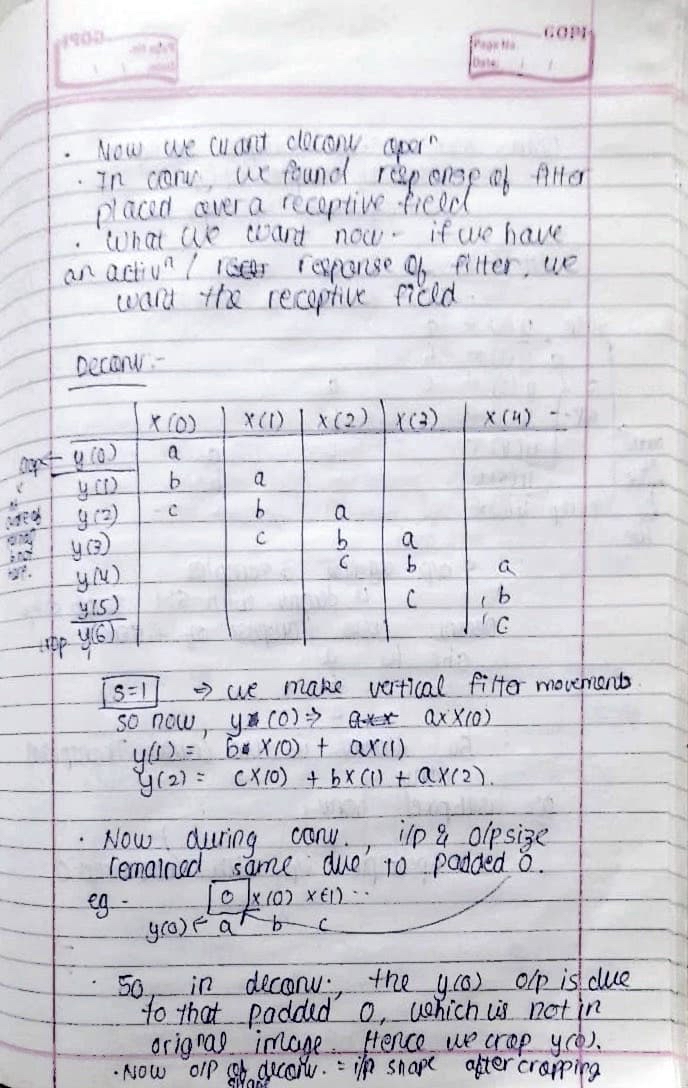 COPI
Page No.
Date: / /
• Now we want deconv opern
• In conv, we found response of filter
placed over a receptive field
• What we want now - if we have
an activn / response of filter, we
want the receptive field.
Deconv :-
x(0) x(1) x(2) x(3) x(4) --
y(0) a
y(1) b a
y(2) c b a
y(3) c b a
y(4) c b a
y(5) c b
y(6) c
S=1 ⇒ we make vertical filter movements.
so now, y(0) ⇒ a x X(0)
y(1) = b x(0) + ax(1)
y(2) = cx(0) + bx(1) + ax(2).
• Now, during conv., i/p & o/p size
remained same due to padded 0.
eg - 0 x(0) x(1) --
y(0) ← a b c
• So, in deconv., the y(0) o/p is due
to that padded 0, which is not in
orignal image. Hence we crop y(0).
• Now o/p shape of deconv. = i/p shape after cropping